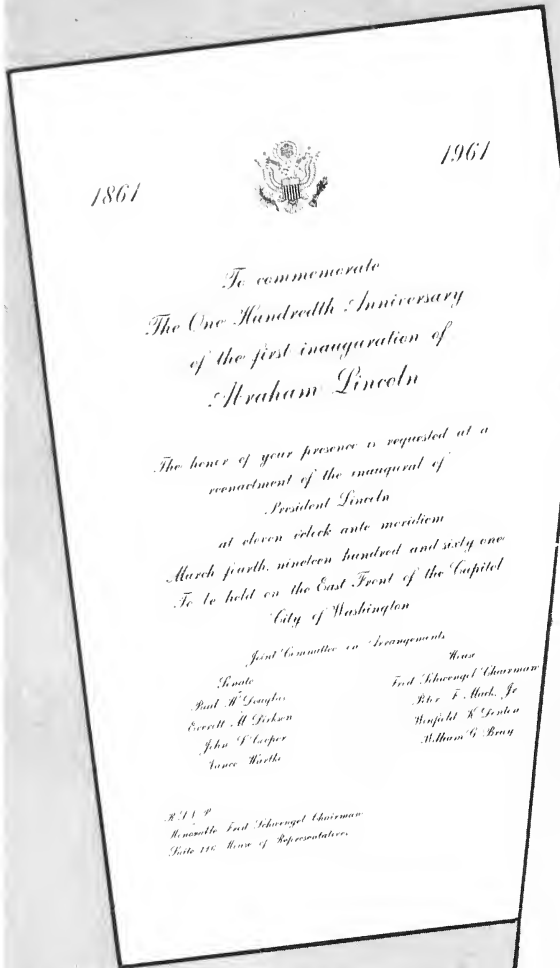 1861
1961
To commemorate
The One Hundredth Anniversary
of the first inauguration of
Abraham Lincoln
The honor of your presence is requested at a
reenactment of the inaugural of
President Lincoln
at eleven o'clock ante meridiem
March fourth, nineteen hundred and sixty one
To be held on the East Front of the Capitol
City of Washington
Joint Committee on Arrangements
Senate
Paul H Douglas
Everett M Dirksen
John S Cooper
Vance Hartke
House
Fred Schwengel Chairman
Peter F. Mack, Jr
Winfield K Denton
William G Bray
R S V P
Honorable Fred Schwengel Chairman
Suite House of Representatives